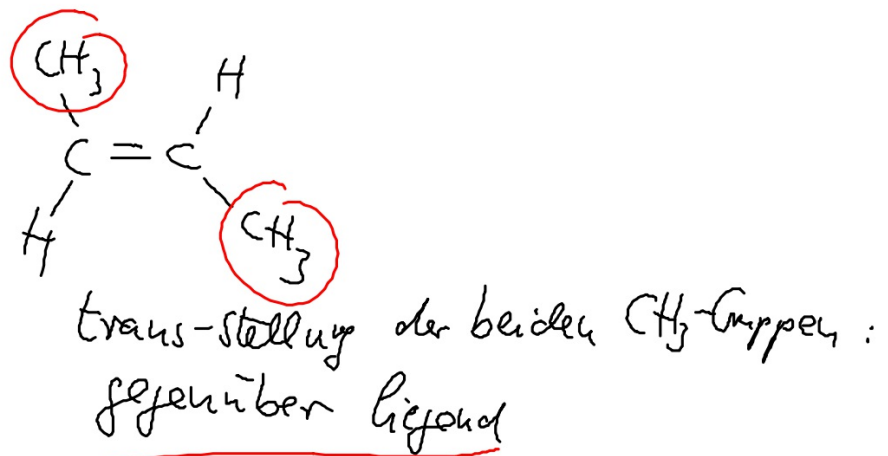 CH3
H
C = C
H
CH3
trans-stellung der beiden CH3-Gruppen :
gegenüber liegend